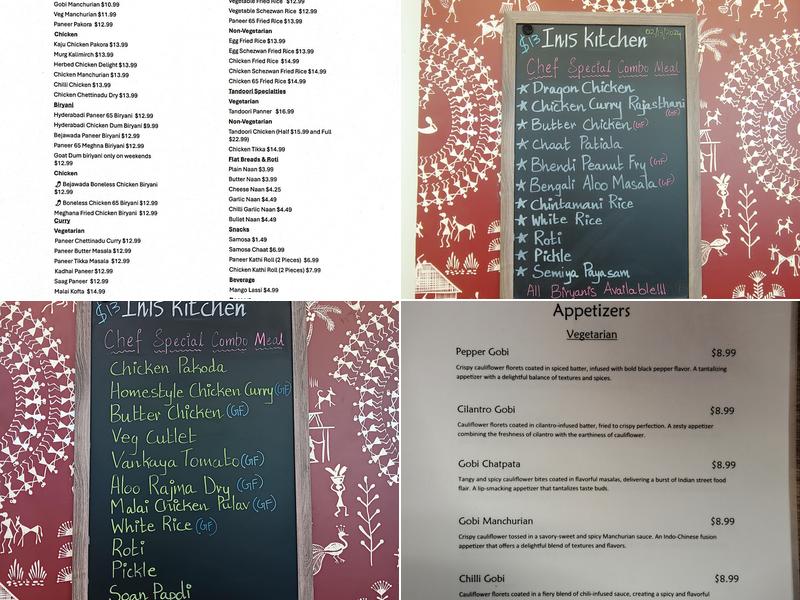 Gobi Manchurian $10.99
Veg Manchurian $11.99
Paneer Pakora $12.99
Chicken
Kaju Chicken Pakora $13.99
Murg Kalimirch $13.99
Herbed Chicken Delight $13.99
Chicken Manchurian $13.99
Chilli Chicken $13.99
Chicken Chettinadu Dry $13.99
Biryani
Hyderabadi Paneer 65 Biryani $12.99
Hyderabadi Chicken Dum Biryani $9.99
Bejawada Paneer Biryani $12.99
Paneer 65 Meghna Biriyani $12.99
Goat Dum biriyani only on weekends
$12.99
Chicken
Bejawada Boneless Chicken Biryani
$12.99
Boneless Chicken 65 Biryani $12.99
Meghana Fried Chicken Biryani $12.99
Curry
Vegetarian
Paneer Chettinadu Curry $12.99
Paneer Butter Masala $12.99
Paneer Tikka Masala $12.99
Kadhai Paneer $12.99
Saag Paneer $12.99
Malai Kofta $14.99
Vegetable Fried Rice $12.99
Vegetable Schezwan Rice $12.99
Paneer 65 Fried Rice $13.99
Non-Vegetarian
Egg Fried Rice $13.99
Egg Schezwan Fried Rice $13.99
Chicken Fried Rice $14.99
Chicken Schezwan Fried Rice $14.99
Chicken 65 Fried Rice $14.99
Tandoori Specialties
Vegetarian
Tandoori Panner $16.99
Non-Vegetarian
Tandoori Chicken (Half $15.99 and Full
$22.99)
Chicken Tikka $14.99
Flat Breads & Roti
Plain Naan $3.99
Butter Naan $3.99
Cheese Naan $4.25
Garlic Naan $4.49
Chilli Garlic Naan $4.49
Bullet Naan $4.49
Snacks
Samosa $1.49
Samosa Chaat $6.99
Paneer Kathi Roll (2 Pieces) $6.99
Chicken Kathi Roll (2 Pieces) $7.99
Beverage
Mango Lassi $4.99
02/13/2024
$13 Inis Kitchen
Chef Special Combo Meal
★ Dragon Chicken
★ Chicken Curry Rajasthani
(GF)
★ Butter Chicken (GF)
★ Chaat Patiala
★ Bhendi Peanut Fry (GF)
★ Bengali Aloo Masala (GF)
★ Chintamani Rice
★ White Rice
★ Roti
★ Pickle
★ Semiya Payasam
All Biryanis Available!!!
$13 Inis Kitchen
Chef Special Combo Meal
Chicken Pakoda
Homestyle Chicken Curry (GF)
Butter Chicken (GF)
Veg Cutlet
Vankaya Tomato (GF)
Aloo Rajma Dry (GF)
Malai Chicken Pulav (GF)
White Rice (GF)
Roti
Pickle
Soan Papdi
Appetizers
Vegetarian
Pepper Gobi $8.99
Crispy cauliflower florets coated in spiced batter, infused with bold black pepper flavor. A tantalizing
appetizer with a delightful balance of textures and spices.
Cilantro Gobi $8.99
Cauliflower florets coated in cilantro-infused batter, fried to crispy perfection. A zesty appetizer
combining the freshness of cilantro with the earthiness of cauliflower.
Gobi Chatpata $8.99
Tangy and spicy cauliflower bites coated in flavorful masalas, delivering a burst of Indian street food
flair. A lip-smacking appetizer that tantalizes taste buds.
Gobi Manchurian $8.99
Crispy cauliflower tossed in a savory-sweet and spicy Manchurian sauce. An Indo-Chinese fusion
appetizer that offers a delightful blend of textures and flavors.
Chilli Gobi $8.99
Cauliflower florets coated in a fiery blend of chili-infused sauce, creating a spicy and flavorful